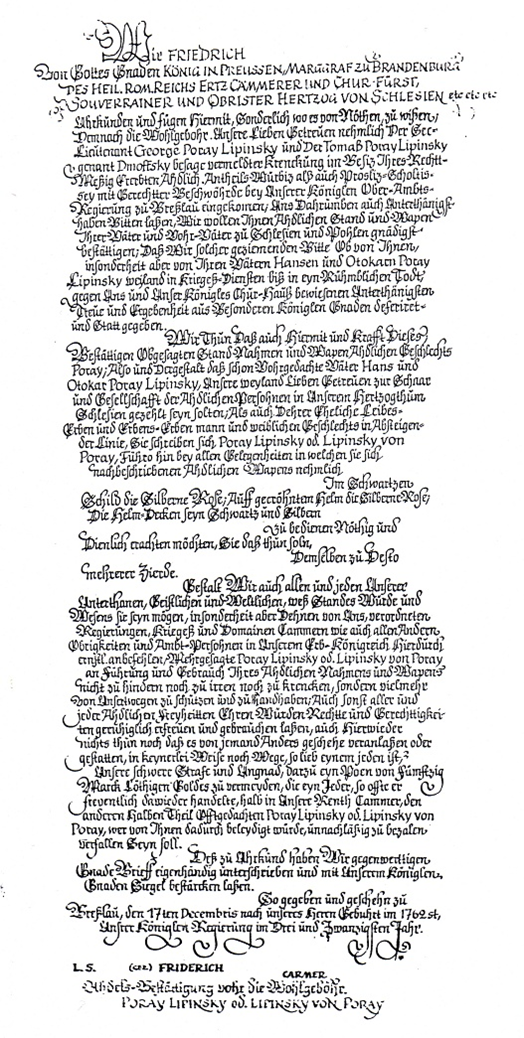 Wir FRIEDRICH
Von Gottes Gnaden KÖNIG IN PREUSSEN, MARGGRAF ZU BRANDENBURG
DES HEIL. ROM. REICHS ERTZ CÄMMERER UND CHUR-FÜRST,
SOUVERRAINER UND OBRISTER HERTZOG VON SCHLESIEN etc etc etc
Uhrkünden und fügen Hiermit, Sonderlich wo es von Nöthen, zu wißen;
Demnach die Wohlgebohr. Unsere Lieben Getreuen nehmlich Der Sec-
Lieutenant George Poray Lipinsky und Der Tomaß Poray Lipinsky
genant Dmoffsky besage vermeldter Krenckung im Besiz Ihres Rechtt-
Mäßig Ererbten Ahdlich. Antheils Würbiz alß auch Prösliz-Scholtis-
sey mit Gerechtter Beschwöhrde bey Unserer Königlen Ober-Ambts-
Regierung zu Breßlau eingekomen; Uns Dahrümben auch Unterthänigst-
haben Bitten laßen, Wir wollen Ihnen Ahdlichen Stand und Wapen
Ihrer Väter und Vohr-Väter zu Schlesien und Pohlen gnädigst
bestättigen; Daß Wir solcher geziemenden Bitte Ob von Ihnen,
insonderheit aber von Ihren Vätern Hansen und Otokarn Poray
Lipinsky weiland in Kriegeß-Diensten biß in eyn Rühmblichen Todt,
gegen Uns und Unser Königles Chur-Hauß bewiesenen Unterthänigsten
Treue und Ergebenheit aus Besonderen Königlen Gnaden deferiret-
und Statt gegeben.
Wir Thun Daß auch Hiermit und Krafft Dieses,
Bestättigen Obgesagten Stand Nahmen und Wapen Ahdlichen Geschlechts
Poray; Also und Dergestalt daß schon Vohrgedachte Väter Hans und
Otokar Poray Lipinsky, Unsere weyland Lieben Getreuen zur Schaar
und Gesellschafft der Ahdlichen Persohnen in Unserem Hertzogthüm
Schlesien gezehlt seyn solten; Als auch Dehrer Eheliche Leibes-
Erben und Erbens-Erben mann und weiblichen Geschlechts in Absteigen-
der Linie, Sie schreiben sich, Poray Lipinsky od. Lipinsky von
Poray, Führo hin bey allen Gelegenheiten in welchen sie sich
nachbeschriebenen Ahdlichen Wapens nehmlich
Im Schwartzen
Schild die Silberne Rose; Auff gecröhnten Helm die Silberne Rose;
Die Helm-Decken seyn Schwartz und Silbern
Zu bedienen Nöthig und
Dienlich erachten möchten, Sie daß thun soln,
Demselben zu Desto
mehrerer Zierde.
Gestalt Wir auch allen und jeden Unserer
Unterthanen, Geistlichen und Weltlichen, weß Standes Würde und
Wesens sie seyn mögen, insonderheit aber Dehnen von Uns, verordneten
Regierungen, Kriegeß und Domainen Cammern wie auch allen Andern
Obrigkeiten und Ambt-Persohnen in Unserem Erb-Königreich Hierdurch
ernstl. anbefehlen, Mehrgesagte Poray Lipinsky od. Lipinsky von Poray
an Führung und Gebrauch Ihres Ahdlichen Nahmens und Wapens
nicht zu hindern noch zu irren noch zu krencken, sondern vielmehr
von Unsertwegen zu schützen und zu handhaben; Auch sonst aller und
jeder Ahdlichen Freyheitten Ehren Würden Rechtte und Gerechtigkei-
ten gerühiglich erfreuen und gebrauchen laßen, auch Hierwieder
nichts thün noch daß es von jemand Anders geschehe veranlaßen oder
gestatten, in keynerlei Weise noch Wege, so lieb eynem jeden ist,
Unsere schwere Strafe und Ungnad, darzu eyn Poen von Fünffzig
Marck Löthigen Goldes zu vermeyden, die eyn Jeder, so offte er
freventlich dawieder handelte, halb in Unsere Renth Cammer, den
anderen Halben Theil Offtgedachten Poray Lipinsky od. Lipinsky von
Poray, wer von Ihnen dadurch beleydigt würde, unnachläßig zu bezalen
verfallen Seyn soll.
Deß zu Uhrkünd haben Wir gegenwertigen
Gnade Brieff eigenhändig unterschrieben und mit Unserem Königlen,
Gnaden Siegel bestärcken laßen.
So gegeben und geschehn zu
Breßlau, den 17ten Decembris nach unseres Herrn Gebuhrt im 1762st,
Unser Königlen Regierung im Drei und Zwanzigsten Jahr.
L.S. (gez.) FRIDERICH
CARMER
Ahdels-Bestättigung vohr die Wohlgebohr.
PORAY LIPINSKY od. LIPINSKY VON PORAY